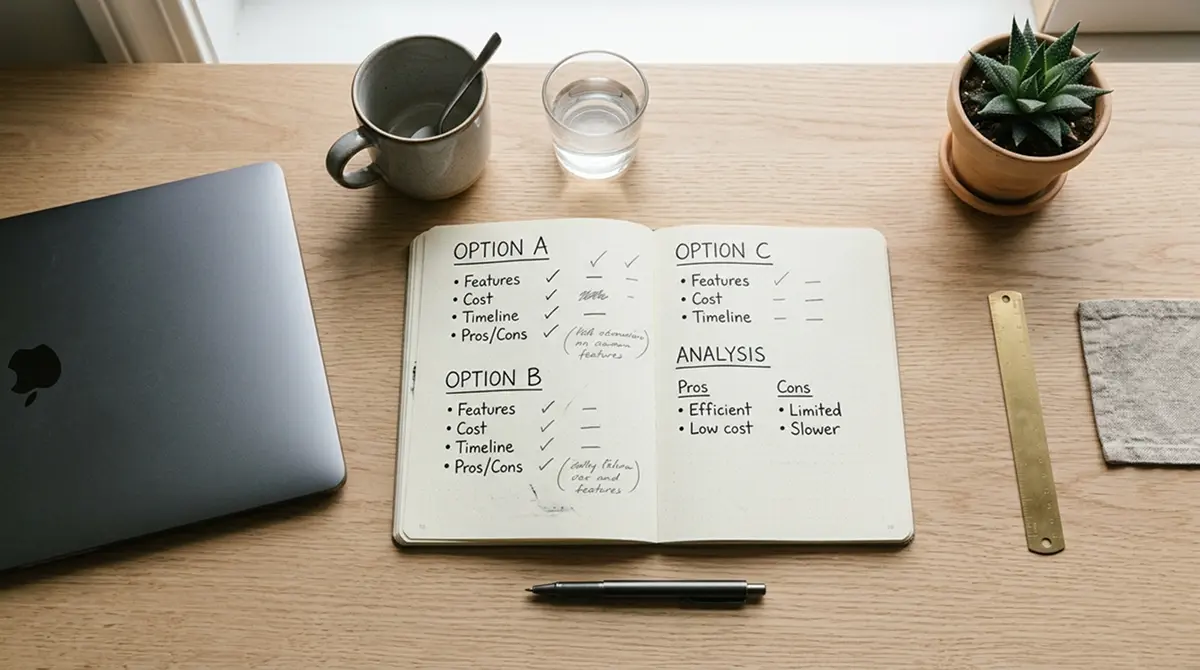 OPTION A
• Features
• Cost
• Timeline
• Pros/Cons
features
OPTION B
• Features
• Cost
• Timeline
• Pros/Cons
and
features
OPTION C
• Features
• Cost
• Timeline
ANALYSIS
Pros
• Efficient
• Low cost
Cons
• Limited
• Slower